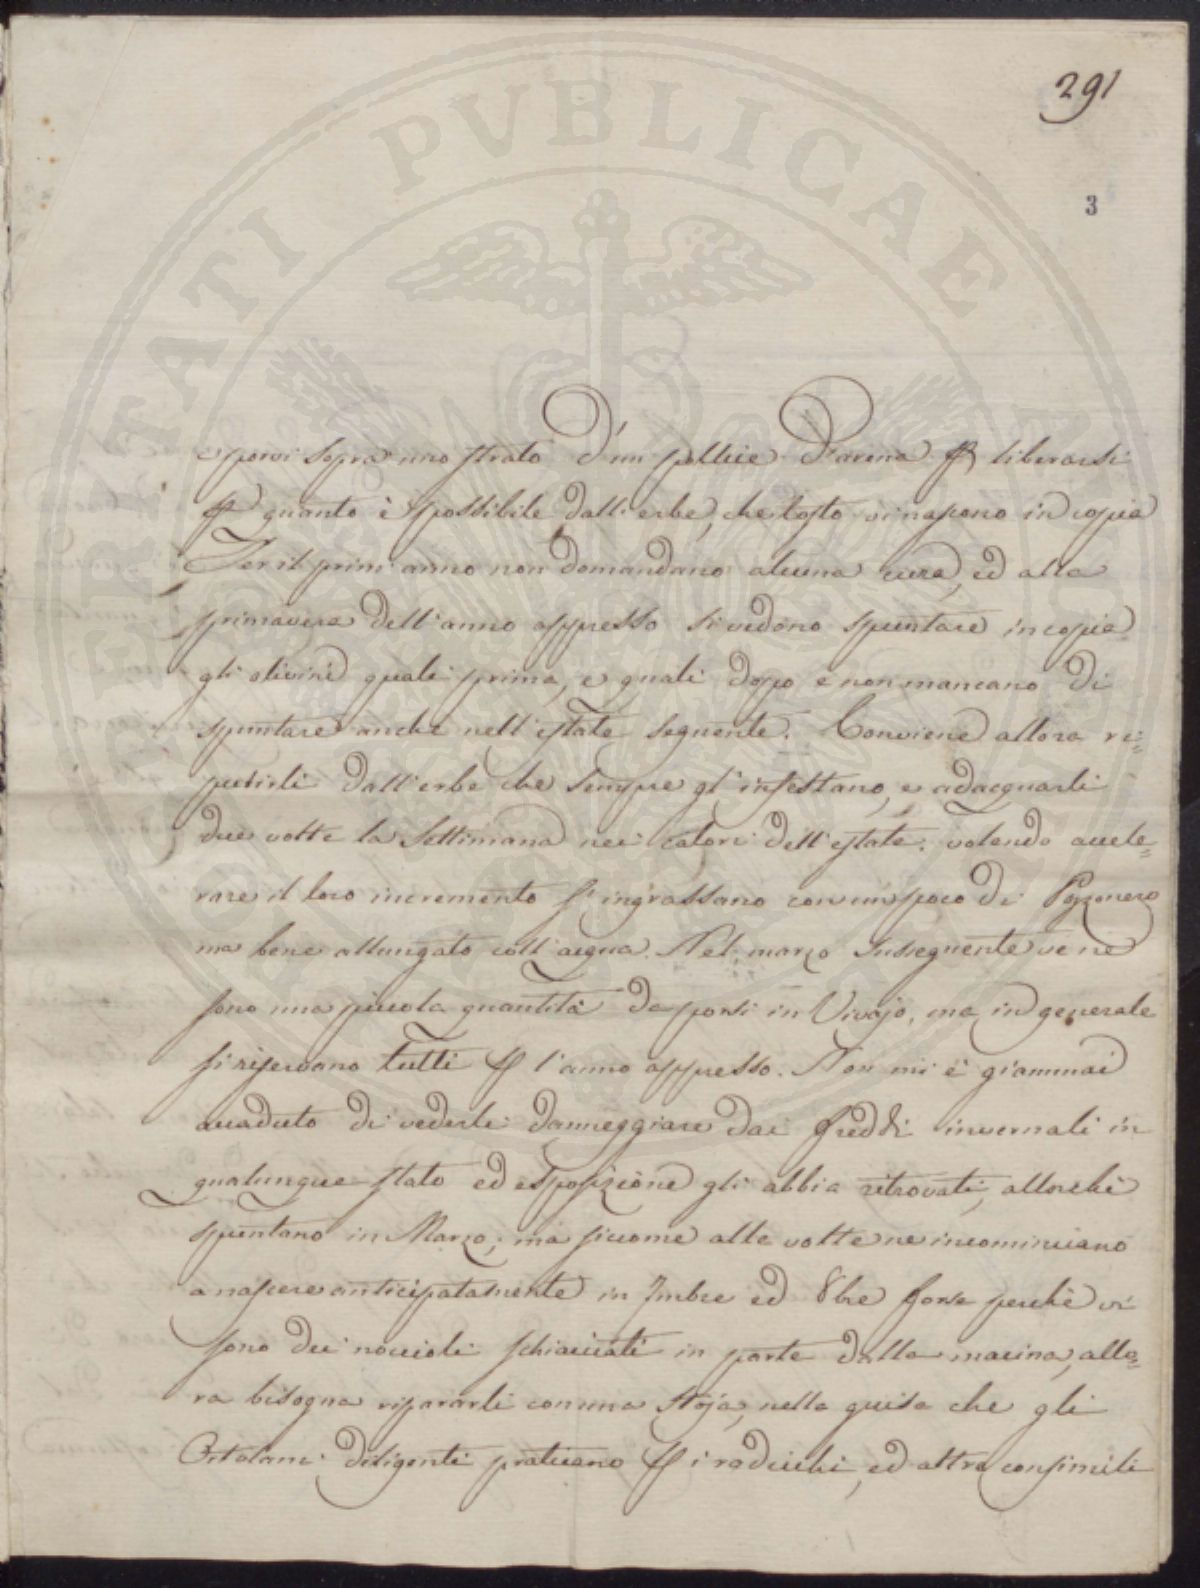 291
3
e porvi sopra uno strato d'un pollice d'arena p liberarsi
p quanto è possibile dall'erbe, che tosto vi nascono in copia
Per il prim'anno non domandano alcuna cura, ed alla
primavera dell'anno appresso si vedono spuntare in copia
gli olivini quali prima, e quali dopo e non mancano di
spuntare anche nell'estate seguente. Conviene allora ri=
pulirli dall'erbe che sempre gl'infestano, e adacquarli
due volte la settimana nei calori dell'estate. volendo accele=
rare il loro incremento s'ingrassano con un poco di Pozzonero
ma bene allungato coll'acqua. Nel marzo susseguente ve ne
sono una piccola quantità da porsi in Vivajo, ma in generale
si riserbano tutti p l'anno appresso. Non mi è giammai
accaduto di vederli danneggiare dai freddi invernali in
qualunque stato ed esposizione gli abbia ritrovati, allorchè
spuntano in Marzo; ma siccome alle volte ne incominciano
a nascere anticipatamente in 7mbre ed 8bre forse perchè vi
sono dei noccioli schiacciati in parte dalla macina, allo=
ra bisogna ripararli con una stoja, nella guisa che gli
Ortolani diligenti praticano p i radicchi, ed altre consimili
PUBLICAE